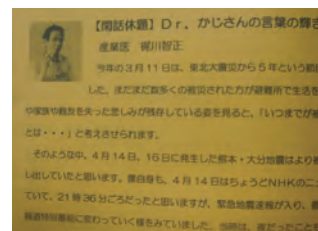 【閑話休題】Dr．かじさんの言葉の輝き
産業医 梶川智正
今年の3月11日は、東北大震災から5年という節目
した。まだまだ数多くの被災された方が避難所で生活を
や家族や親友を失った悲しみが残存している姿を見ると、「いつまでが被
とは・・・」と考えさせられます。
そのような中、4月14日、16日に発生した熊本・大分地震はより
し出していたと思います。僕自身も、4月14日はちょうどNHKのニュ
ていて、21時36分ごろだったと思いますが、緊急地震速報が入り、
報道特別番組に変わっていく様をみていました。当初は、夜だったこと